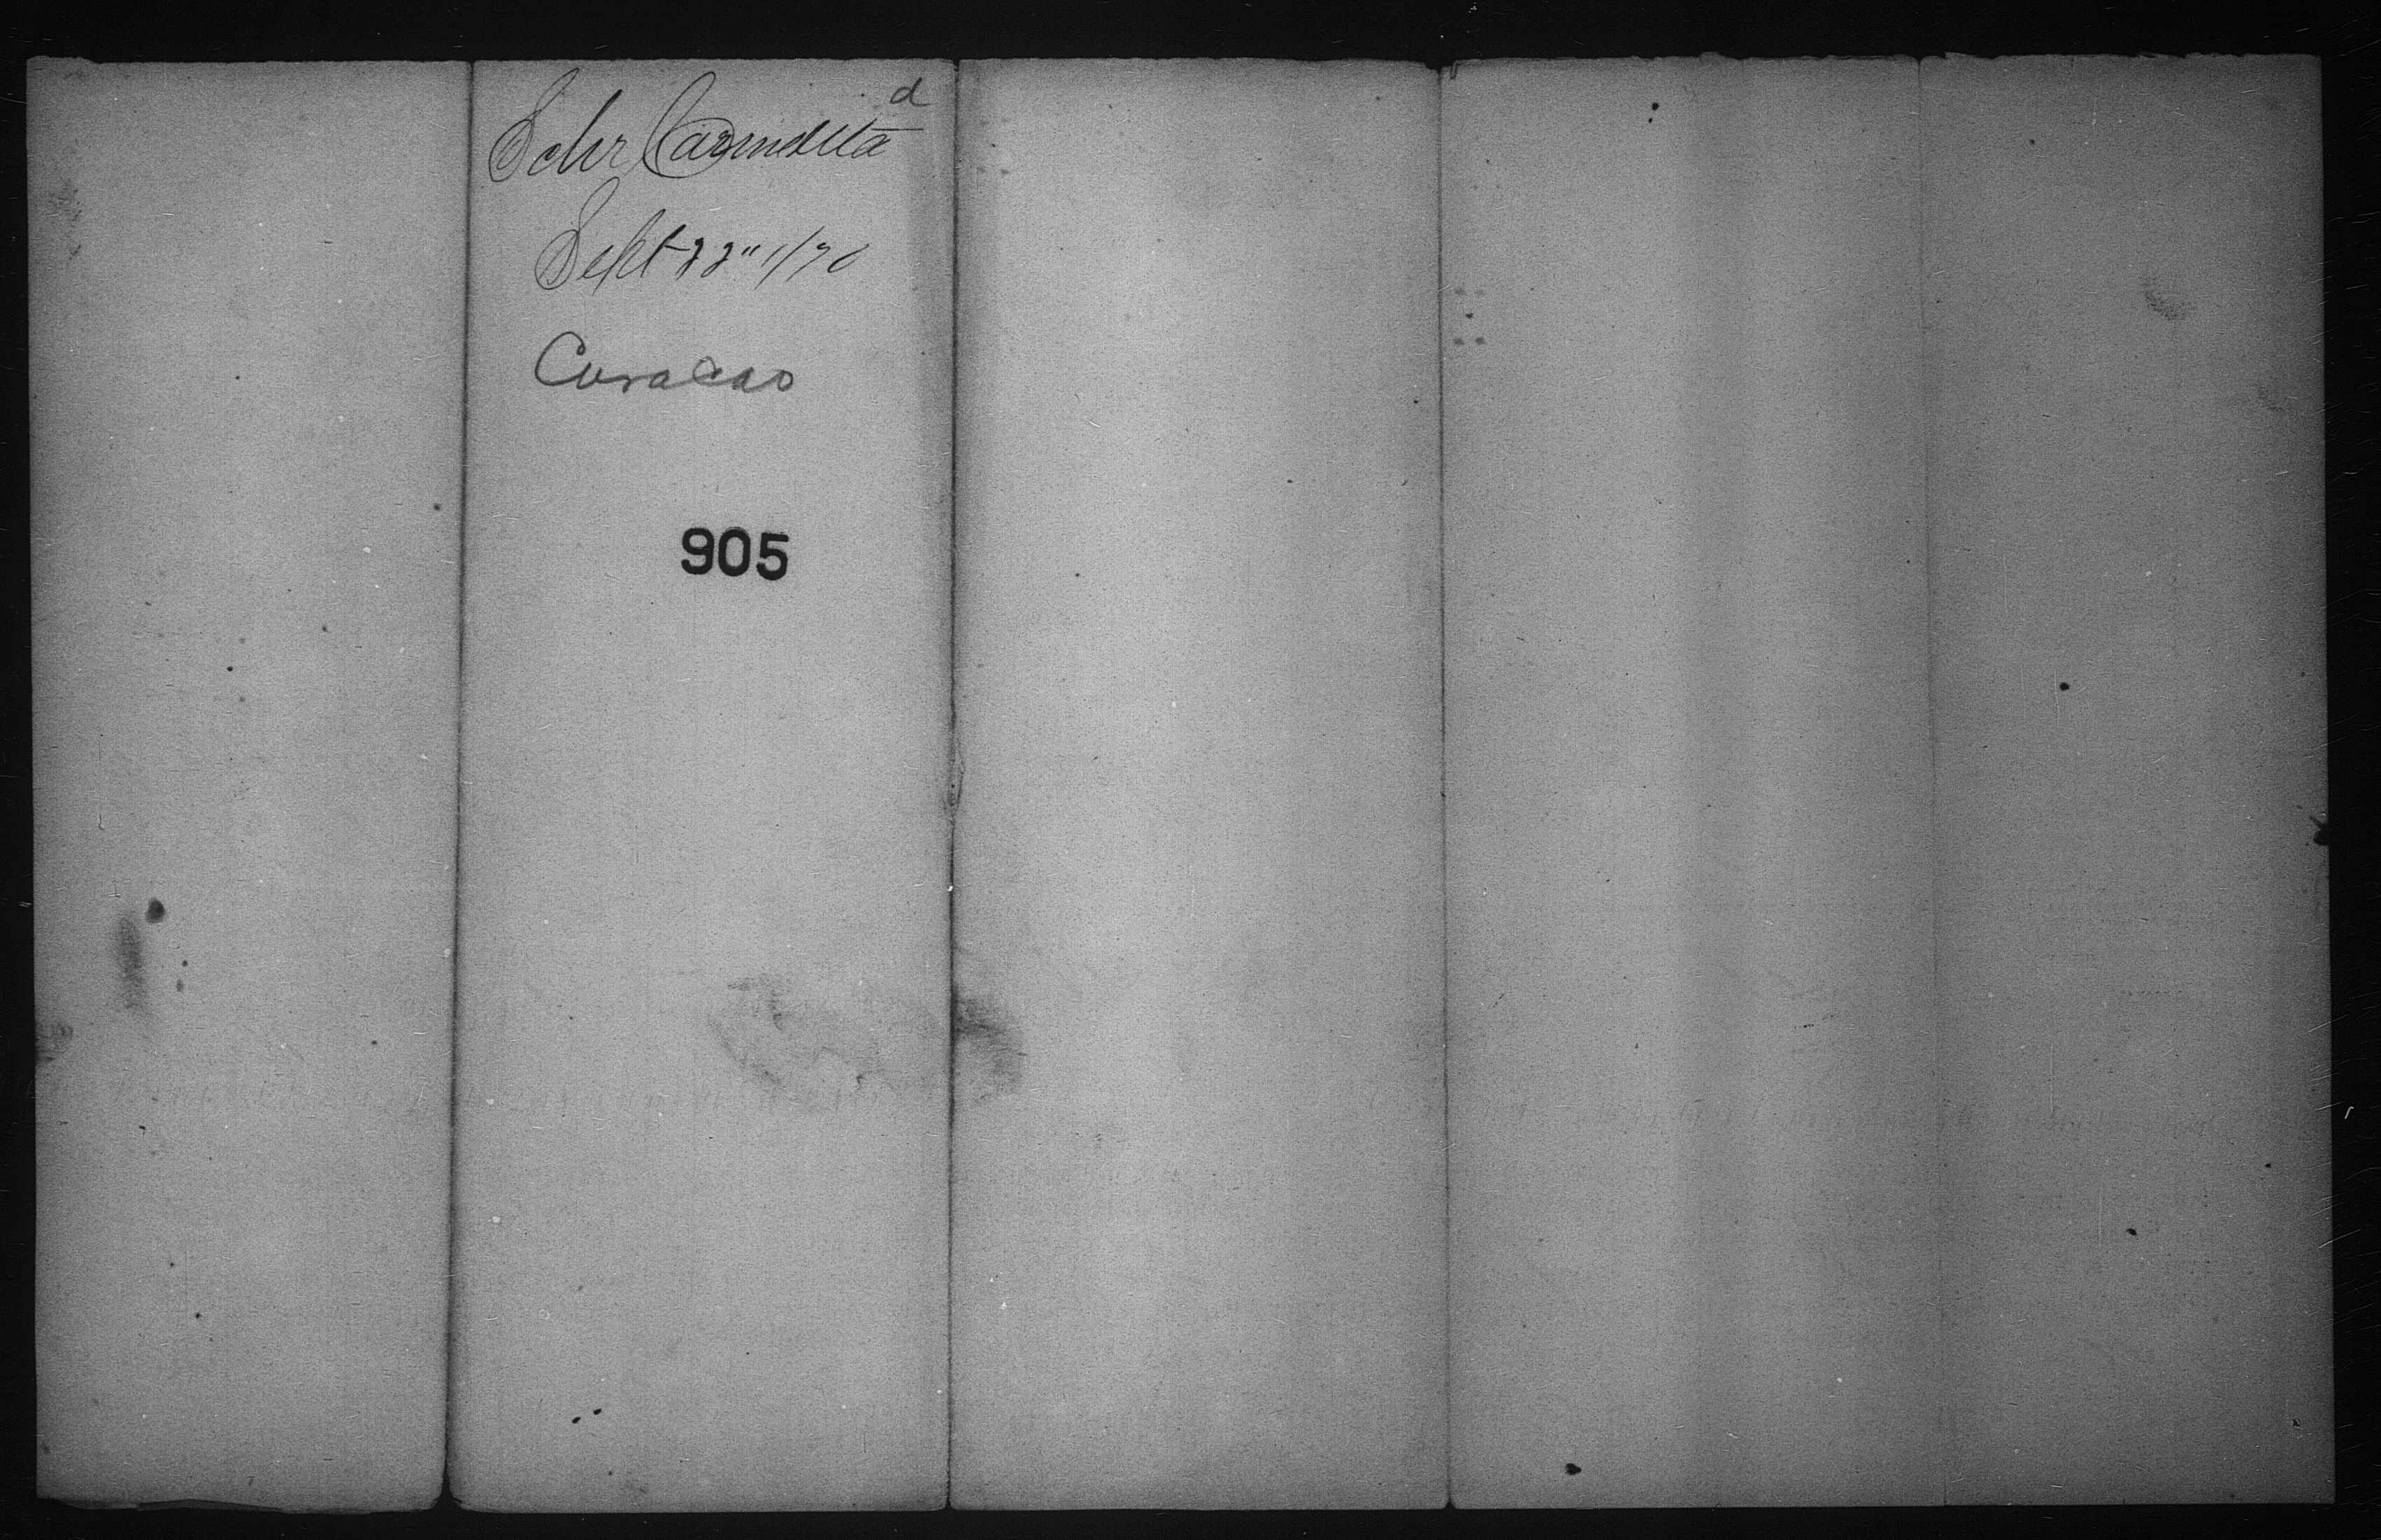 d
Schr Carmelita
Sept 22" 1/70
Curacao
905